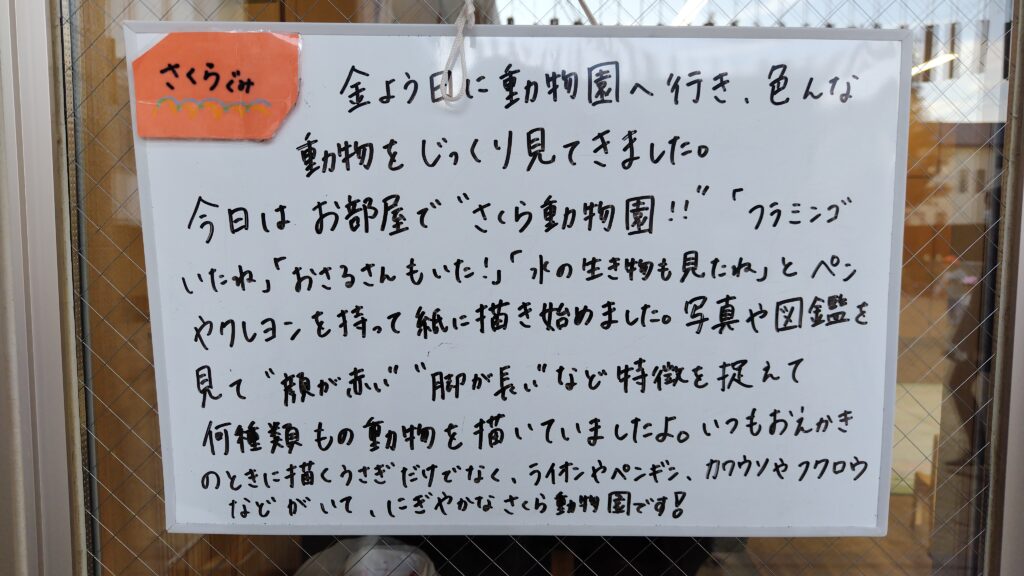 さくらぐみ
金よう日に動物園へ行き、色んな
動物をじっくり見てきました。
今日はお部屋で"さくら動物園!!"「フラミンゴ
いたね」「おさるさんもいた!」「水の生き物も見たね」とペン
やクレヨンを持って紙に描き始めました。写真や図鑑を
見て"顔が赤い""脚が長い"など特徴を捉えて
何種類もの動物を描いていましたよ。いつもおえかき
のときに描くうさぎだけでなく、ライオンやペンギン、カワウソやフクロウ
などがいて、にぎやかなさくら動物園です!